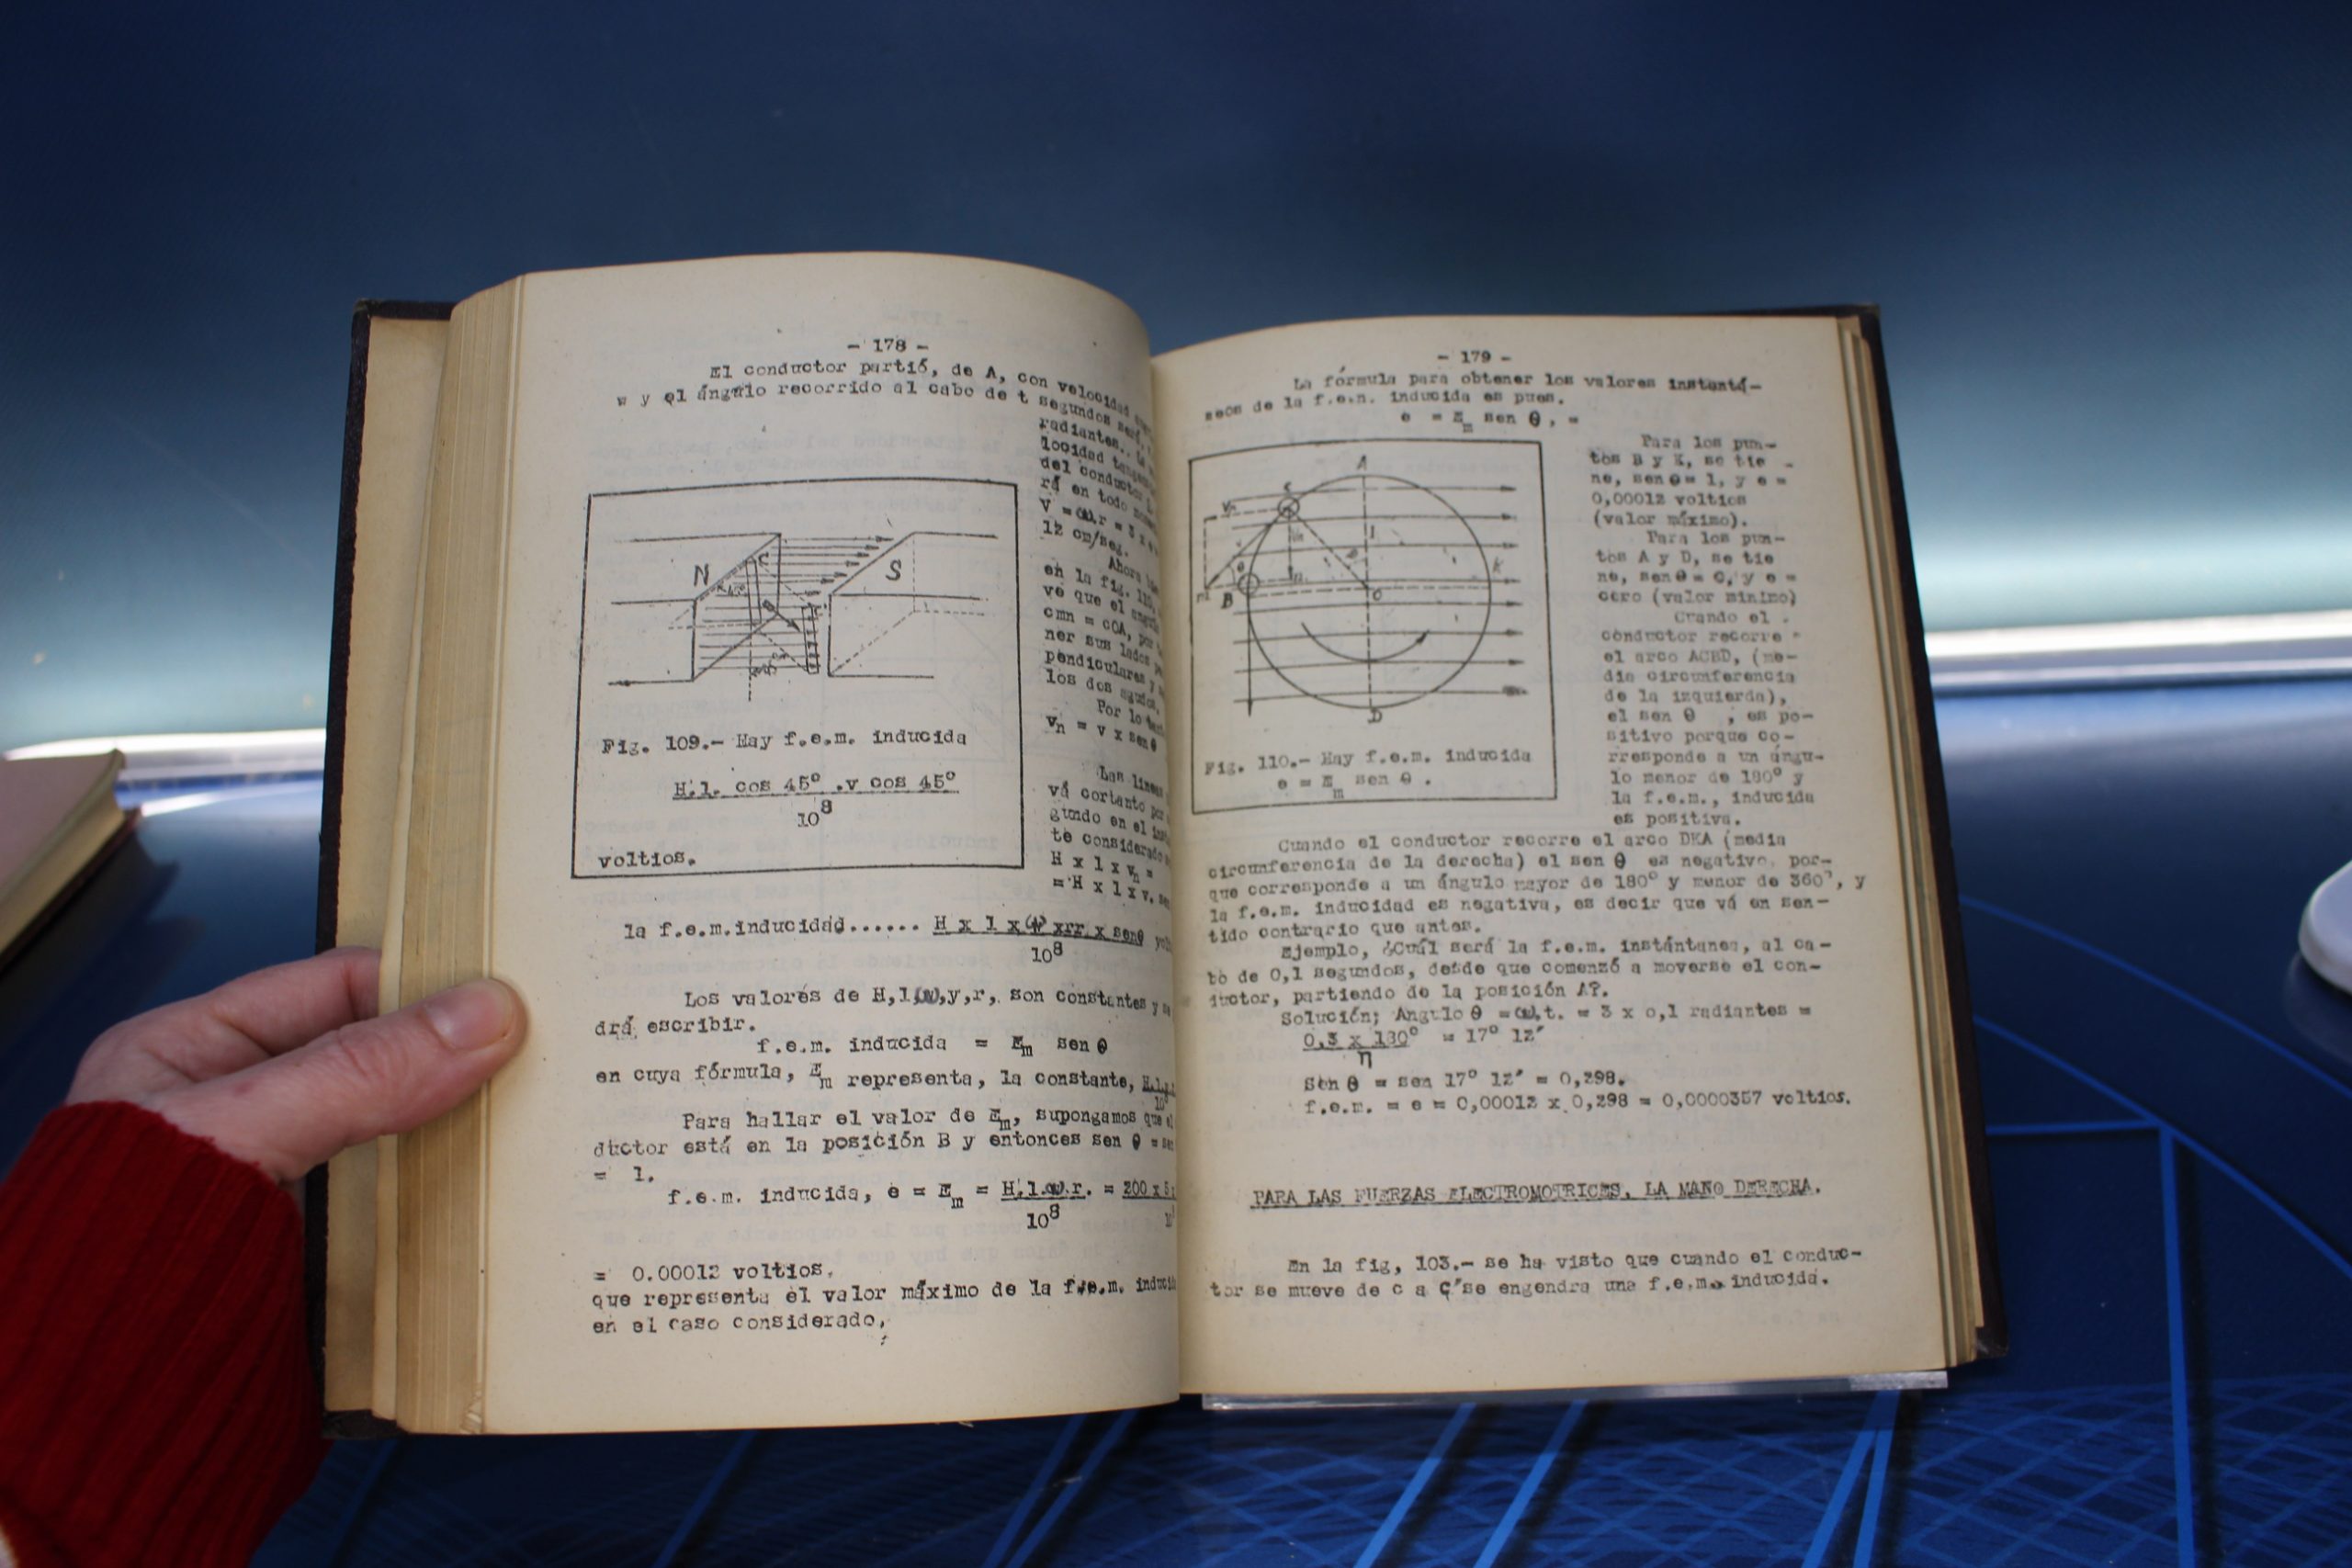 - 178 -
El conductor partió, de A, con velocidad
w y el ángulo recorrido al cabo de t segundos será,
radiantes.. La
locidad
del conductor
rá en todo
V = ω.r = 3 x
12 cm/seg.
Ahora
en la fig. 110,
vé que el
cmn = COA, por
ner sus lados
pendiculares y
los dos agudos.
Por lo
vn = v x sen θ
Las lineas
vá cortanto por
gundo en el
te considerado
H x l x vn =
= H x l x v. sen
N
S
C
C'
Fig. 109.- Hay f.e.m. inducida
H.l. cos 45º .v cos 45º
10⁸
voltios.
la f.e.m.inducidad...... H x l x ω xrr x senθ
10⁸
Los valores de H,l,ω,y,r, son constantes y se
drá escribir.
f.e.m. inducida = Em sen θ
en cuya fórmula, Em representa, la constante,
Para hallar el valor de Em, supongamos que el
ductor está en la posición B y entonces sen θ =
= 1.
f.e.m. inducida, e = Em = H.l.ω.r. = 200 x 5
10⁸
= 0.00012 voltios.
que representa el valor máximo de la f.e.m.
en el caso considerado,
- 179 -
La fórmula para obtener los valores instantá-
neos de la f.e.m. inducida es pues.
e = Em sen θ , =
A
B
K
D
Fig. 110.- Hay f.e.m. inducida
e = Em sen θ .
Para los pun-
tos B y K, se tie -
ne, sen θ= 1, y e =
0,00012 voltios
(valor máximo).
Para los pun-
tos A y D, se tie
ne, sen θ = 0, y e =
cero (valor minimo)
Cuando el .
conductor recorre
el arco ACBD, (me-
dia circunferencia
de la izquierda),
el sen θ , es po-
sitivo porque co-
rresponde a un ángu-
lo menor de 180º y
la f.e.m., inducida
es positiva.
Cuando el conductor recorre el arco DKA (media
circunferencia de la derecha) el sen θ es negativo, por-
que corresponde a un ángulo mayor de 180º y menor de 360º, y
la f.e.m. inducidad es negativa, es decir que vá en sen-
tido contrario que antes.
Ejemplo, ¿Cuál será la f.e.m. instántanea, al ca-
bo de 0,1 segundos, desde que comenzó a moverse el con-
ductor, partiendo de la posición A?.
Solución; Angulo θ = ω.t. = 3 x 0,1 radiantes =
0,3 x 180º = 17º 12´
η
Sen θ = sen 17º 12´ = 0,298.
f.e.m. = e = 0,00012 x 0,298 = 0,0000357 voltios.
PARA LAS FUERZAS ELECTROMOTRICES, LA MANO DERECHA.
En la fig, 103.- se ha visto que cuando el conduc-
tor se mueve de c a C´se engendra una f.e.m. inducida.